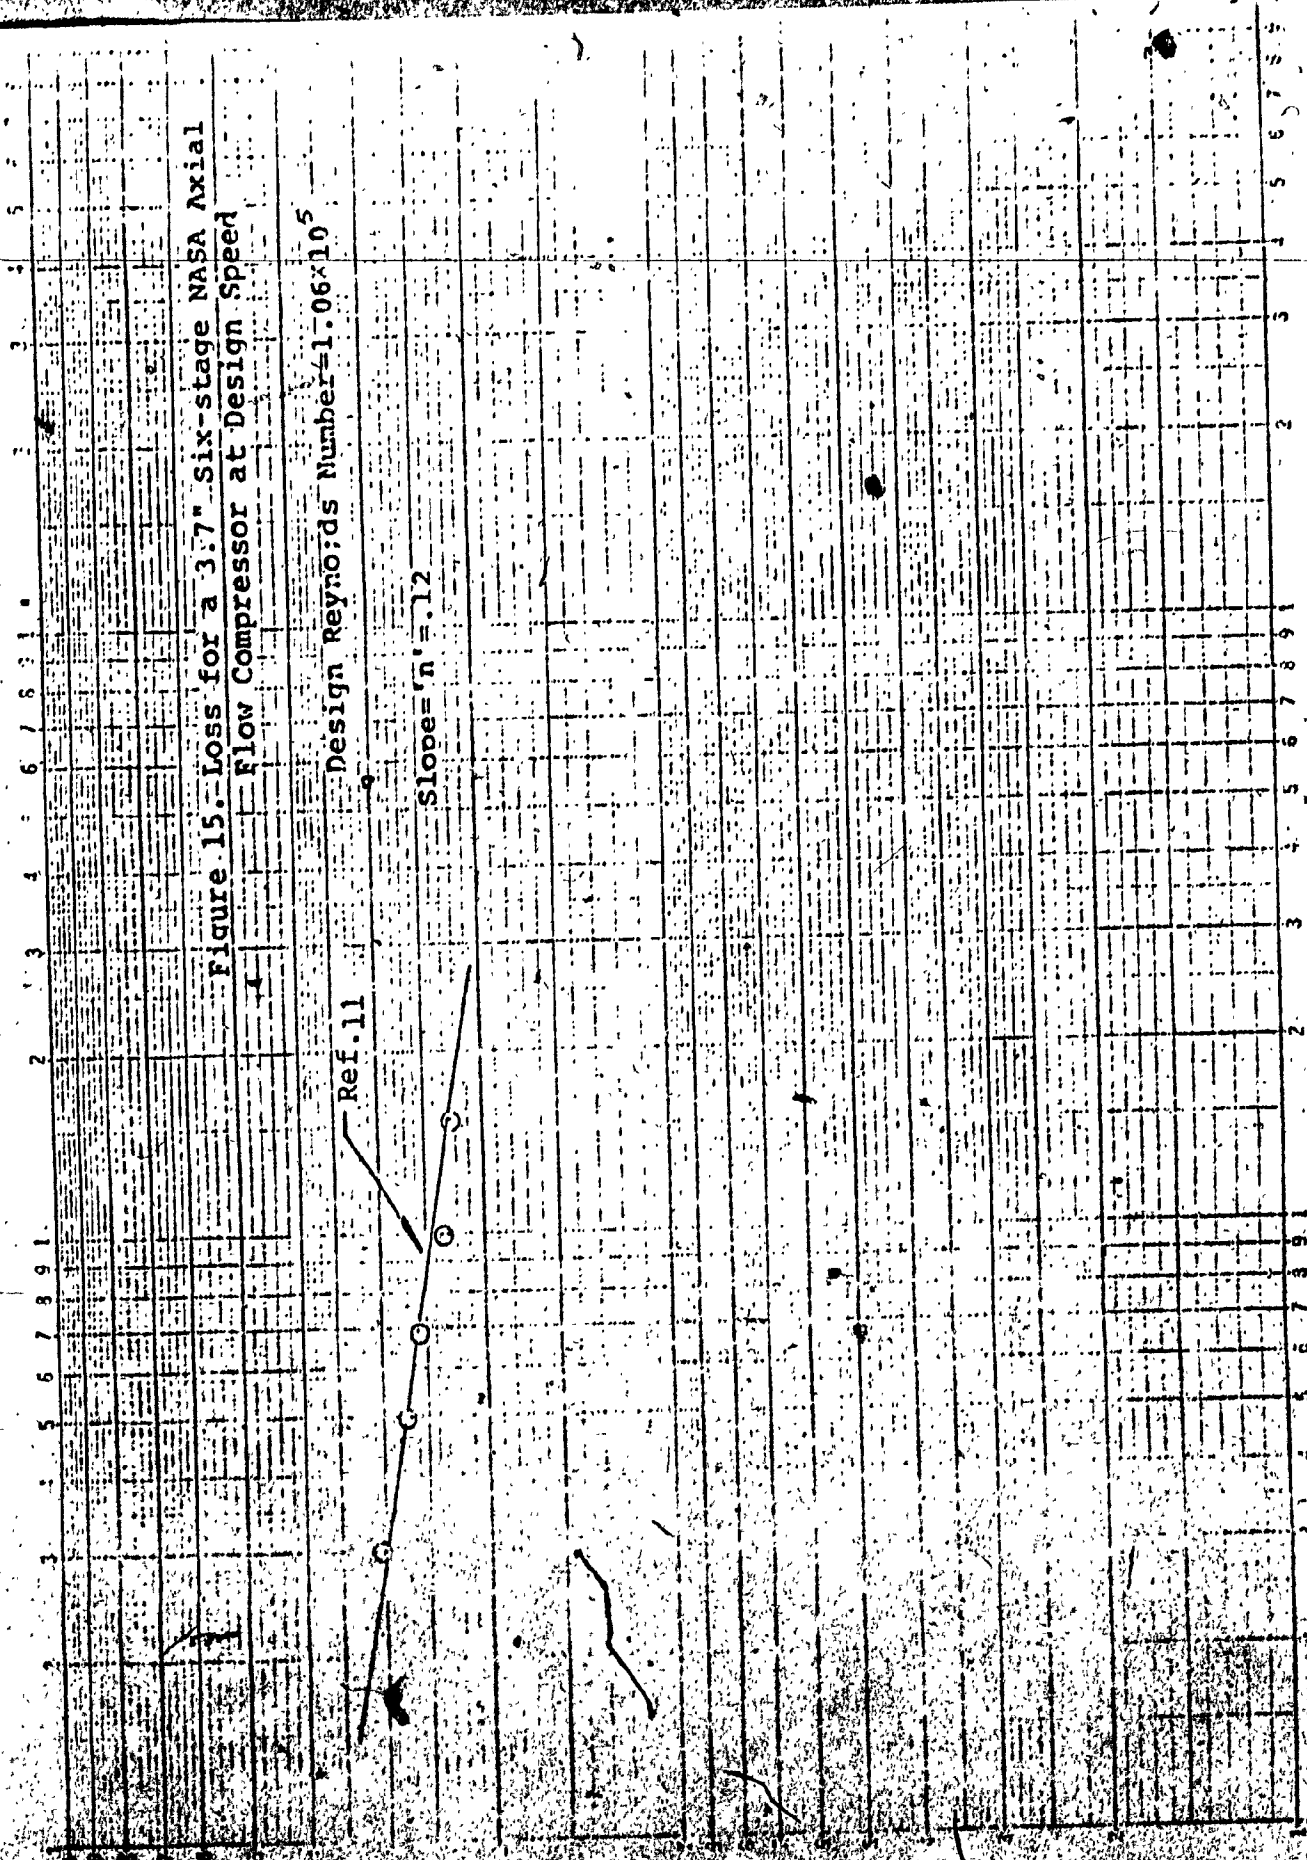 Figure 15.-Loss for a 3.7" Six-stage NASA Axial
Flow Compressor at Design Speed
Design Reynolds Number=1.06x10^5
Slope='n'=.12
Ref.11
2 3 4 5 6 7 8 9 1 2 3 4 5 6 7 8 9 1 2 3 4 5
5 6 7 8 9 1 2 3 4 5 6 7 8 9 1 2 3 4 5 6 7